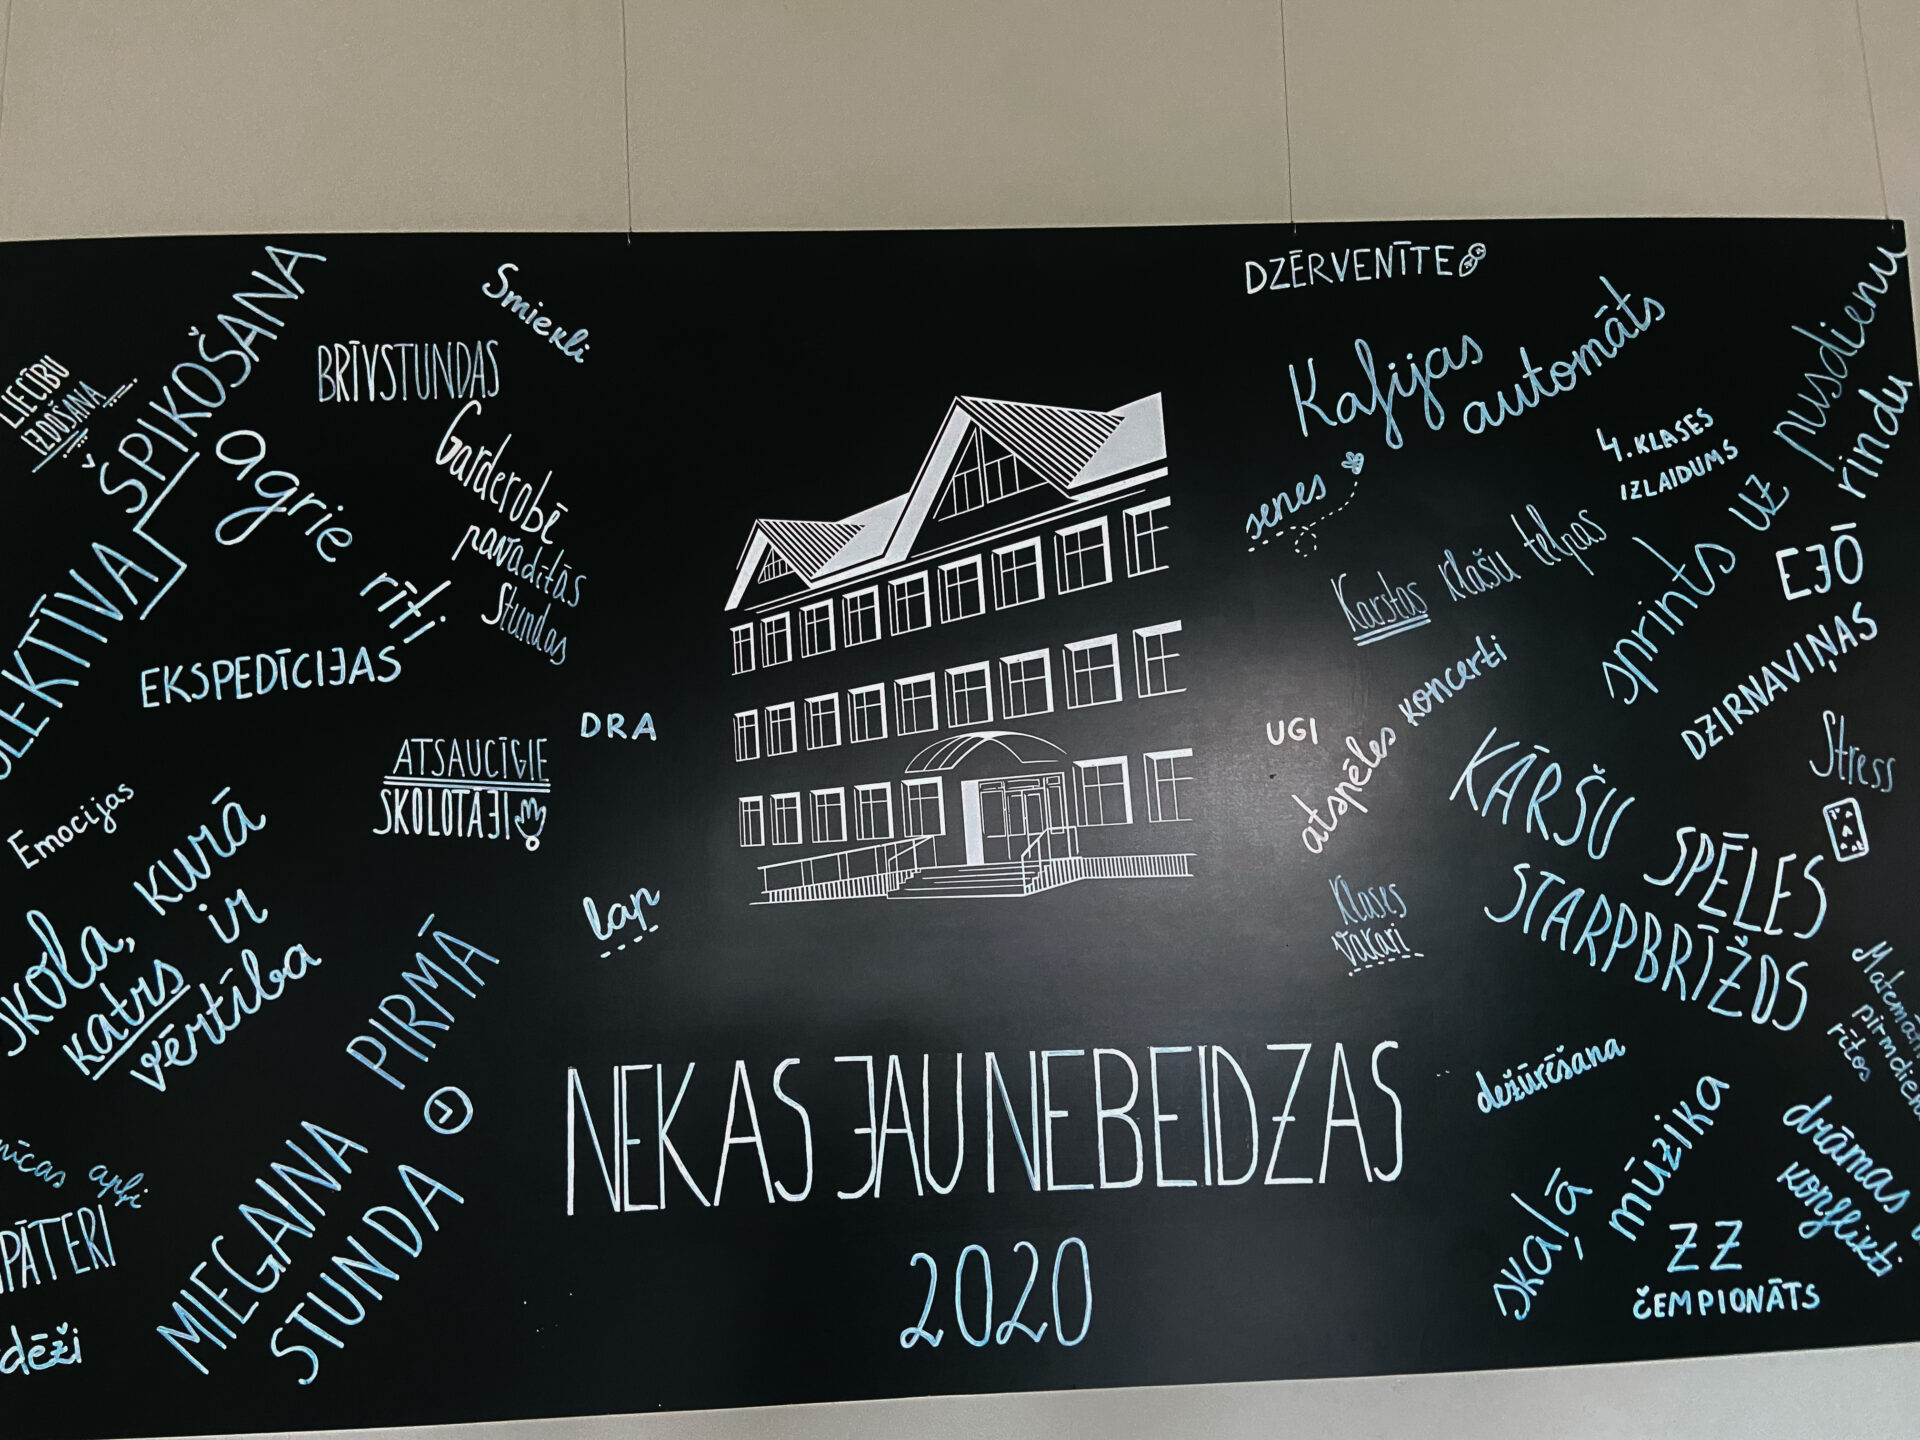 LIECĪBU
IZDOŠANA
ŠPIKOŠANA
agrie rīti
BRĪVSTUNDAS
Smiekli
Garderobē
pavadītās
Stundas
EKSPEDĪCIJAS
ATSAUCĪGIE
SKOLOTĀJI
DRA
UGI
Emocijas
skola, kurā
katrs ir
vērtība
lap
MIEGAINA PIRMĀ
STUNDA
NEKAS JAU NEBEIDZAS
2020
DZĒRVENĪTE
Kafijas
automāts
senes
4. KLASES
IZLAIDUMS
sprints uz pusdienu
rindu
Karstās klašu telpas
EJŌ
DZIRNAVIŅAS
atspēles koncerti
Stress
KĀRŠU SPĒLES
STARPBRĪŽOS
Klases
vakari
rītos
dežūrēšana
skaļā mūzika
drāmas
konflikti
ZZ
ČEMPIONĀTS